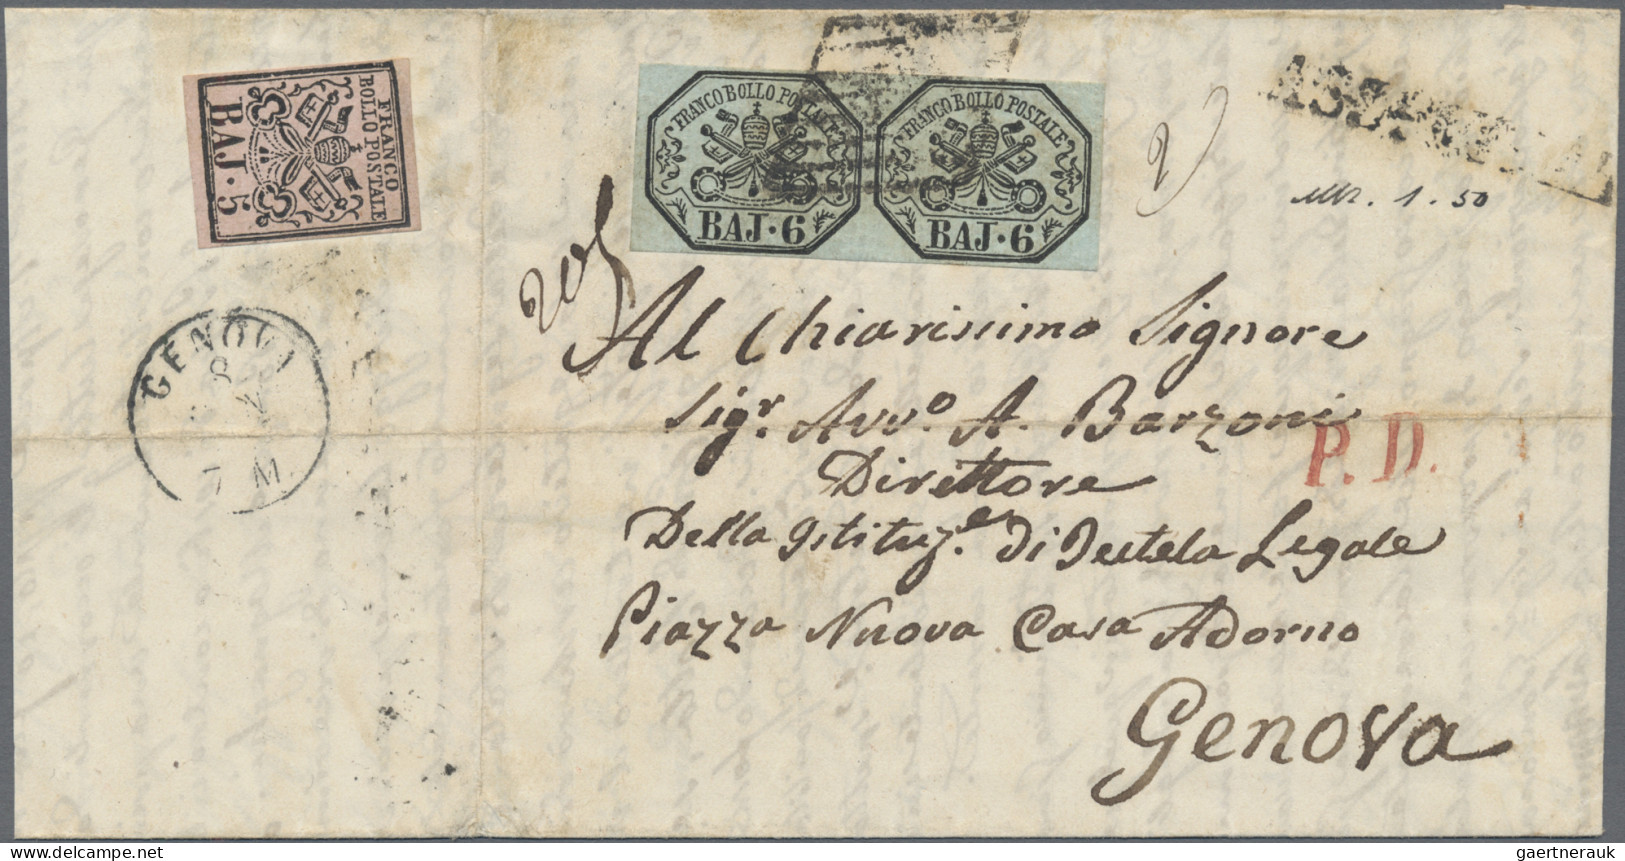 FRANCO
BOLLO POSTALE
BAJ·5
FRANCO BOLLO POSTALE
BAJ·6
FRANCO BOLLO POSTALE
BAJ·6
1.50
GENOVA
8
7 M
Al Chiarissimo Signore
Sigr. Avvo. A. Barzoni
P. D.
Direttore
Della Istituz.e Di Tutela Legale
Piazza Nuova Casa Adorno
Genova
delcampe.net
gaertnerauk